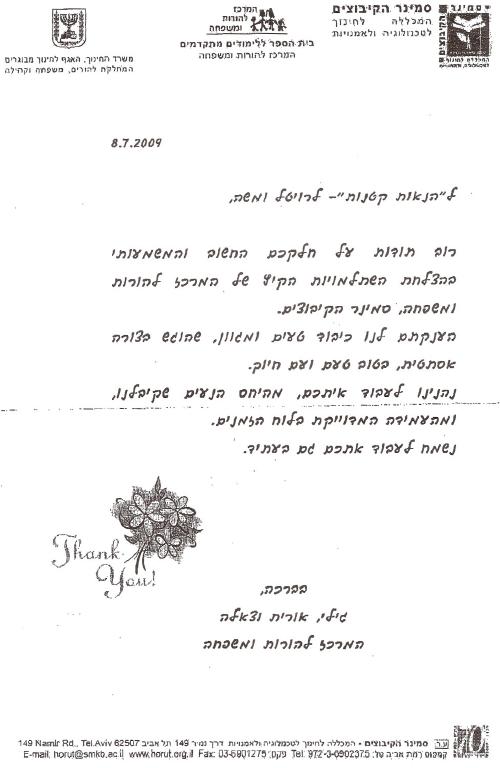 סמינר הקיבוצים
המכללה לחינוך
לטכנולוגיה ולאמנויות
המרכז
להורות
ומשפחה
בית הספר ללימודים מתקדמים
המרכז להורות ומשפחה
משרד החינוך, האגף לחינוך מבוגרים
המחלקה להורים, משפחה וקהילה
8.7.2009
ל"הנאות קטנות"- לרויטל ומשה,
רוב תודות על חלקכם החשוב והמשמעותי
בהצלחת השתלמויות הקיץ של המרכז להורות
ומשפחה, סמינר הקיבוצים.
הענקתם לנו כיבוד טעים ומגוון, שהוגש בצורה
אסתטית, בטוב טעם ועם חיוך.
נהנינו לעבוד איתכם, מהיחס הנעים שקיבלנו,
ומהעמידה המדוייקת בלוח הזמנים.
נשמח לעבוד אתכם גם בעתיד.
Thank
You!
בברכה,
גילי, אורית וצאלה
המרכז להורות ומשפחה
סמינר הקיבוצים • המכללה לחינוך לטכנולוגיה ולאמנויות דרך נמיר 149 תל אביב 62507 149 Namir Rd., Tel.Aviv
קמפוס רמת אביב טל: Tel: 972-3-6902375 פקס: Fax: 03-6901275 www.horut.org.il E-mail: horut@smkb.ac.il